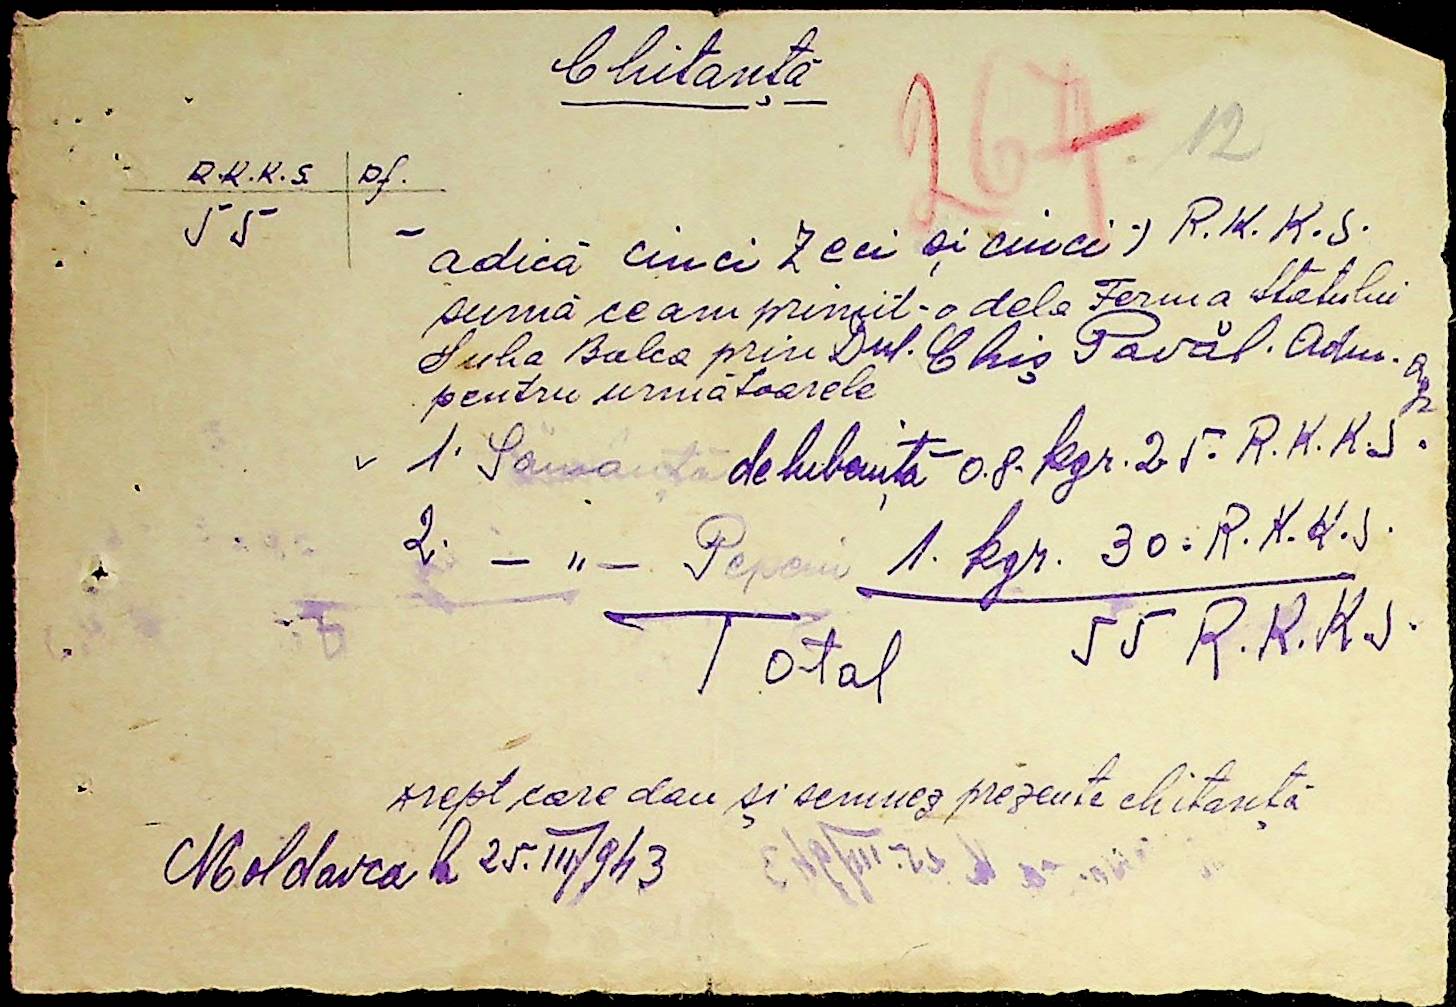 Chitanță
267 . 12
R.K.K.S. pf.
55 -
adică cinci zeci și cinci) R.K.K.S.
sumă ce am primit-o dela Ferma Statului
Suha Balca prin Dnl. Chiș Pavăl. Adm. ag
pentru următoarele
1. Sămânță de lubeniță 0.8. kgr. 25. R.K.K.S.
2. — " — Pepeni 1. kgr. 30. R.K.K.S.
Total 55 R.K.K.S.
drept care dau și semnez prezenta chitanță
Moldavca la 25.III/943